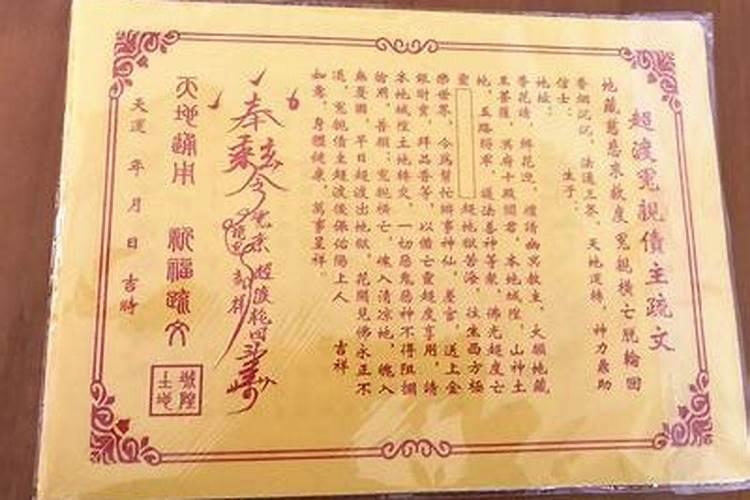 超渡冤親債主疏文
地藏慈悲求救度 冤親橫亡脫輪回
香烟沉沉，法通三界，天地運轉，神力鼎助
信士： 生于：
地址：
香花請，鮮花迎，禮請幽冥教主，大願地藏
王菩薩，冥府十殿閻君，本地城隍，山神土
地，五路將軍，道法善神等衆，佛光超度亡
靈 超地獄苦海 往生西方極
樂世界，今爲幫忙辦事神仙，差官，送上金
銀財寶，拜品香等，以備亡靈超度享用，請
本地城隍土地轉交，一切惡鬼惡神不得阻攔
搶用，普願：冤親橫亡，魂入清凉地，魄入
無憂園，早日超渡出地獄，花開見佛永正不
退，冤親債主超渡後保佑陽上人 吉祥
如意，身體健康，萬事呈祥。
奉
玄
乘令
超渡
天地通用 祈福疏文
城隍
土地
天運 年 月 日 吉時